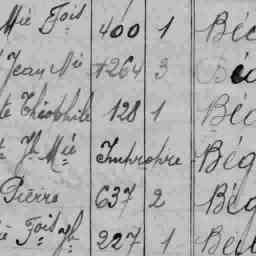 Mie Fois 400 1 Béc
Jean Mie 1264 3 Béc
te Théophile 128 1 Béc
Jh Mie Impropre Bég
Pierre 637 2 Bég
Fois Jh 227 1 Beil